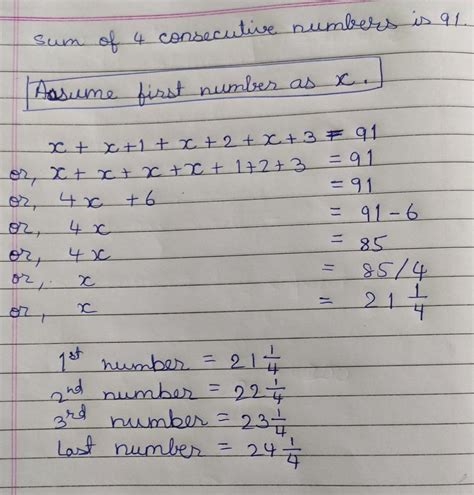 Sum of 4 consecutive numbers is 91.
Assume first number as x.
x + x+1 + x+2 + x+3 = 91
or, x + x + x + x + 1+2+3 = 91
or, 4x + 6 = 91
or, 4x = 91 - 6
or, 4x = 85
or, x = 85/4
or, x = 21 1/4
1st number = 21 1/4
2nd number = 22 1/4
3rd number = 23 1/4
Last number = 24 1/4